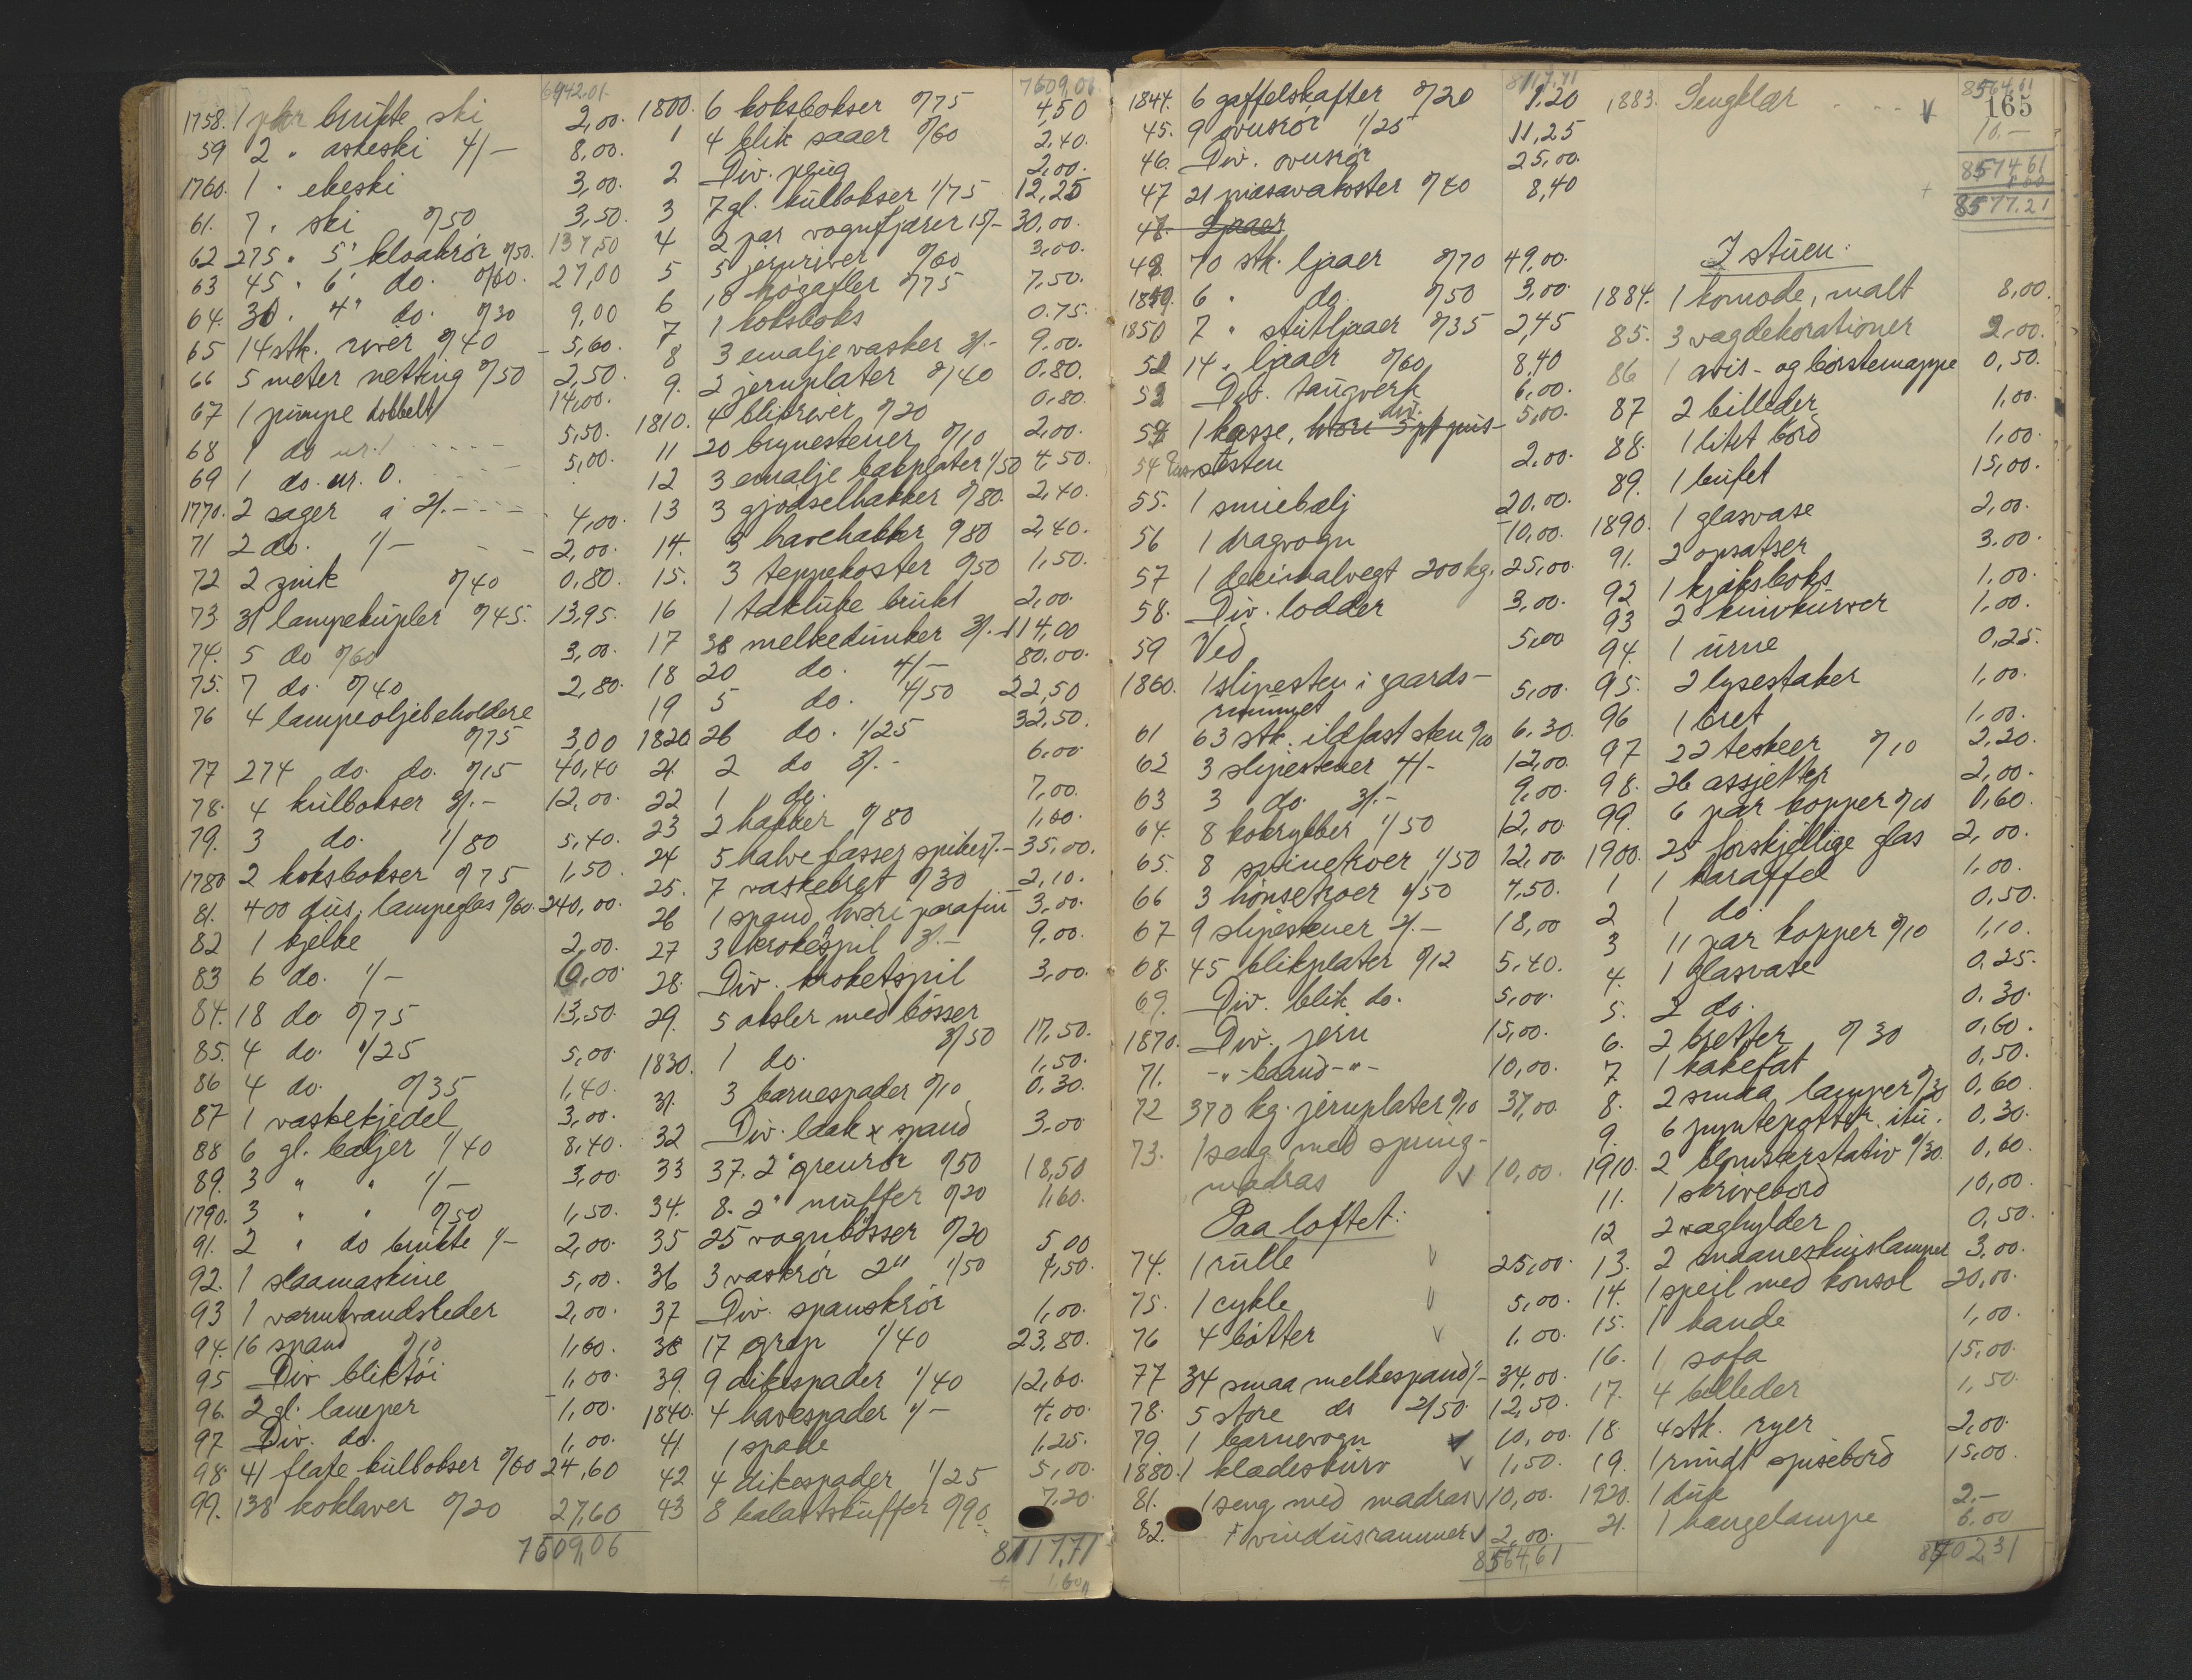 6942.01
1758. 1 par brukte ski 2,00.
59 2 " askeski 4/- 8,00.
1760. 1 " ekeski 3,00.
61. 7 " ski 0/50 3,50.
62 275 " 5" kloakrør 0/50. 137,50
63 45 " 6" do. 0/60. 27,00
64. 30. " 4" do. 0/30 9,00
65 14 stk. river 0/40 5,60.
66 5 meter netting 0/50 2,50.
67 1 pumpe dobbelt 14,00.
68 1 do nr. 1 5,50.
69 1 do. nr. 0. 5,00.
1770. 2 sager a 2/.- 4,00.
71 2 do. 1/- 2,00.
72 2 zink 0/40 0,80.
73. 31 lampekupler 0/45. 13,95.
74. 5 do 0/60 3,00.
75. 7 do. 0/40 2,80.
76 4 lampeoljebeholdere
0/75 3,00
77 274 do. do. 0/15 40,40
78. 4 kulbokser 3/.- 12,00.
79. 3 do. 1/80 5,40.
1780. 2 koksbokser 0/75 1,50.
81. 400 dus. lampeglas 0/60. 240,00.
82 1 kjelke 2,00.
83 6 do. 1/- 6,00.
84. 18 do 0/75 13,50.
85. 4 do. 1/25 5,00.
86 4 do. 0/35 1,40.
87 1 vaskekjedel 3,00.
88 6 gl. baljer 1/40 8,40.
89. 3 " " 1/- 3,00.
1790. 3 " " 0/50 1,50.
91. 2 " do brukte 1/- 2,00.
92. 1 slaamaskine 5,00.
93 1 varmtvandsleder 2,00.
94. 16 spand 0/10 1,60.
95 Div bliktøi 1,00.
96. 2 gl. lamper 1,00.
97 Div. do. 1,00.
98. 41 flate kulbokser 0/60 24,60
99. 138 koklaver 0/20 27,60
7609,06
7609,06
1800. 6 koksbokser 0/75 4,50
1 4 blik saaer 0/60 2,40.
2 Div. plug 2,00.
3 7 gl. kulbokser 1/75 12,25
4 2 par vognfjærer 15/- 30,00.
5 5 jernriver 0/60 3,00.
6 10 høgafler 0/75 7,50.
7 1 koksboks 0.75.
8 3 emalje vasker 3/.- 9,00.
9. 2 jernplater 0/40 0,80.
1810. 4 blikriver 0/20 0,80.
11 20 brynestener 0/10 2,00.
12 3 emalje bakplater 1/50 4,50.
13 3 gjødselhakker 0/80. 2,40.
14. 3 havehakker 0/80 2,40.
15. 3 teppekoster 0/50 1,50.
16 1 takluke brukt 2,00.
17 38 melkedunker 3/.- 114,00
18 20 do. 4/- 80,00.
19 5 do. 4/50 22,50
1820 26 do. 1/25 32,50.
21. 2 do 3/.- 6,00.
22 1 do. 7,00.
23 2 hakker 0/80 1,60.
24 5 halve fasser spiker 7/.- 35,00.
25. 7 vaskebret 0/30 2,10.
26 1 spand hvori parafin 3,00.
27 3 kroketspil 3/.- 9,00.
28. Div. kroketspil 3,00.
29. 5 aksler med bøsser
3/50 17,50.
1830. 1 do. 1,50.
31. 3 barnespader 0/10 0,30.
32 Div. laak x spand 3,00
33 37. 2" grenrør 0/50 18,50
34. 8. 2" muffer 0/20 1,60.
35 25 vognbøsser 0/20 5,00
36 3 vaskrør 2" 1/50 4,50.
37 Div. spanskrør 1,00.
38 17 grep 1/40 23,80.
39. 9 dikespader 1/40 12,60.
1840. 4 havespader 1/- 4,00.
41 1 spade 1,25.
42 4 dikespader 1/25 5,00.
43 8 balastskuffer 0/90. 7,20.
8117,71
+ 1,60
8117,71
1844. 6 gaffelskafter 0/20 1,20
45. 9 ovnsrør 1/25 11,25
46. Div. ovnsrør 25,00.
47 21 piasavakoster 0/40 8,40
48. Ljaaer
48. 70 stk. ljaaer 0/70 49,00.
1849. 6 " do. 0/50 3,00.
1850 7 " stutljaaer 0/35 2,45
51 14 " ljaaer 0/60 8,40
52 Div. taugverk 6,00.
53 1 kasse, hvori div. 5 pk pus- 5,00.
54 sten 2,00.
55. 1 smiebælj 20,00.
56 1 dragvogn 10,00.
57 1 decimalvegt 200 kg. 25,00.
58. Div. lodder 3,00.
59 Ved 5,00
1860. 1 slipesten i gaards-
rummet 5,00.
61 63 stk. ildfast sten 0/10 6,30.
62 3 slipestener 4/- 12,00.
63 3 do. 3/.- 9,00.
64. 8 kokrybber 1/50 12,00
65. 8 springtroer 1/50 12,00
66 3 hønsetroer 1/50 4,50.
67 9 slipestener 2/.- 18,00
68. 45 blikplater 0/12 5,40.
69. Div. blik do. 5,00.
1870. Div. jern 15,00.
71. -"- baand -"- 10,00.
72 370 kg. jernplater 0/10 37,00.
73. 1 seng med spring-
madras √ 10,00.
Paa loftet:
74. 1 rulle √ 25,00.
75. 1 cykle √ 5,00.
76 4 bøtter √ 1,00.
77 34 smaa melkespand 1/- 34,00.
78. 5 store do 2/50 12,50.
79. 1 barnevogn √ 10,00.
1880. 1 klædeskurv √ 1,50.
81. 1 seng med madras √ 10,00.
82. 7 vindusrammer √ 2,00.
8564,61
8564,61
165
1883. Sengklær √ 10.-
8574,61
+
8577.21
I stuen:
1884. 1 komode, malt 8,00.
85. 3 vægdekorationer 2,00.
86 1 avis- og børstemappe 0,50.
87 2 billeder 1,00.
88. 1 litet bord 1,00.
89. 1 bufet 15,00.
1890. 1 glasvase 2,00.
91. 2 opsatser 3,00.
92 1 kjæksboks 1,00.
93 2 knivkurver 1,00.
94. 1 urne 0,25.
95. 2 lysestaker 1,00.
96 1 bret 1,00.
97 22 teskeer 0/10 2,20.
98. 26 assjetter 2,00.
99. 6 par kopper 0/10 0,60.
1900. 25 forskjellige glas 2,00.
1 1 karaffel 1,00.
2 1 do. 0,50.
3 11 par kopper 0/10 1,10.
4. 1 glasvase 0,25.
5. 2 do. 0,30.
6. 2 bretter 0/30 0,60.
7 1 kakefat 0,50.
8. 2 smaa lamper 0/30 0,60
9. 6 pyntepotter itu. 0,30.
1910. 2 blomsterstativ 0/30. 0,60
11. 1 skrivebord 10,00.
12 2 væghylder 0,50.
13. 2 maaneskinslamper 3,00.
14. 1 speil med konsol 20,00.
15. 1 kande 1,00.
16. 1 sofa 15,00.
17. 4 billeder 1,50.
18. 4 stk. ryer 2,00.
19. 1 rundt spisebord 15,00.
1920. 1 duk 2.-
21. 1 hængelampe 6,00
8702,31